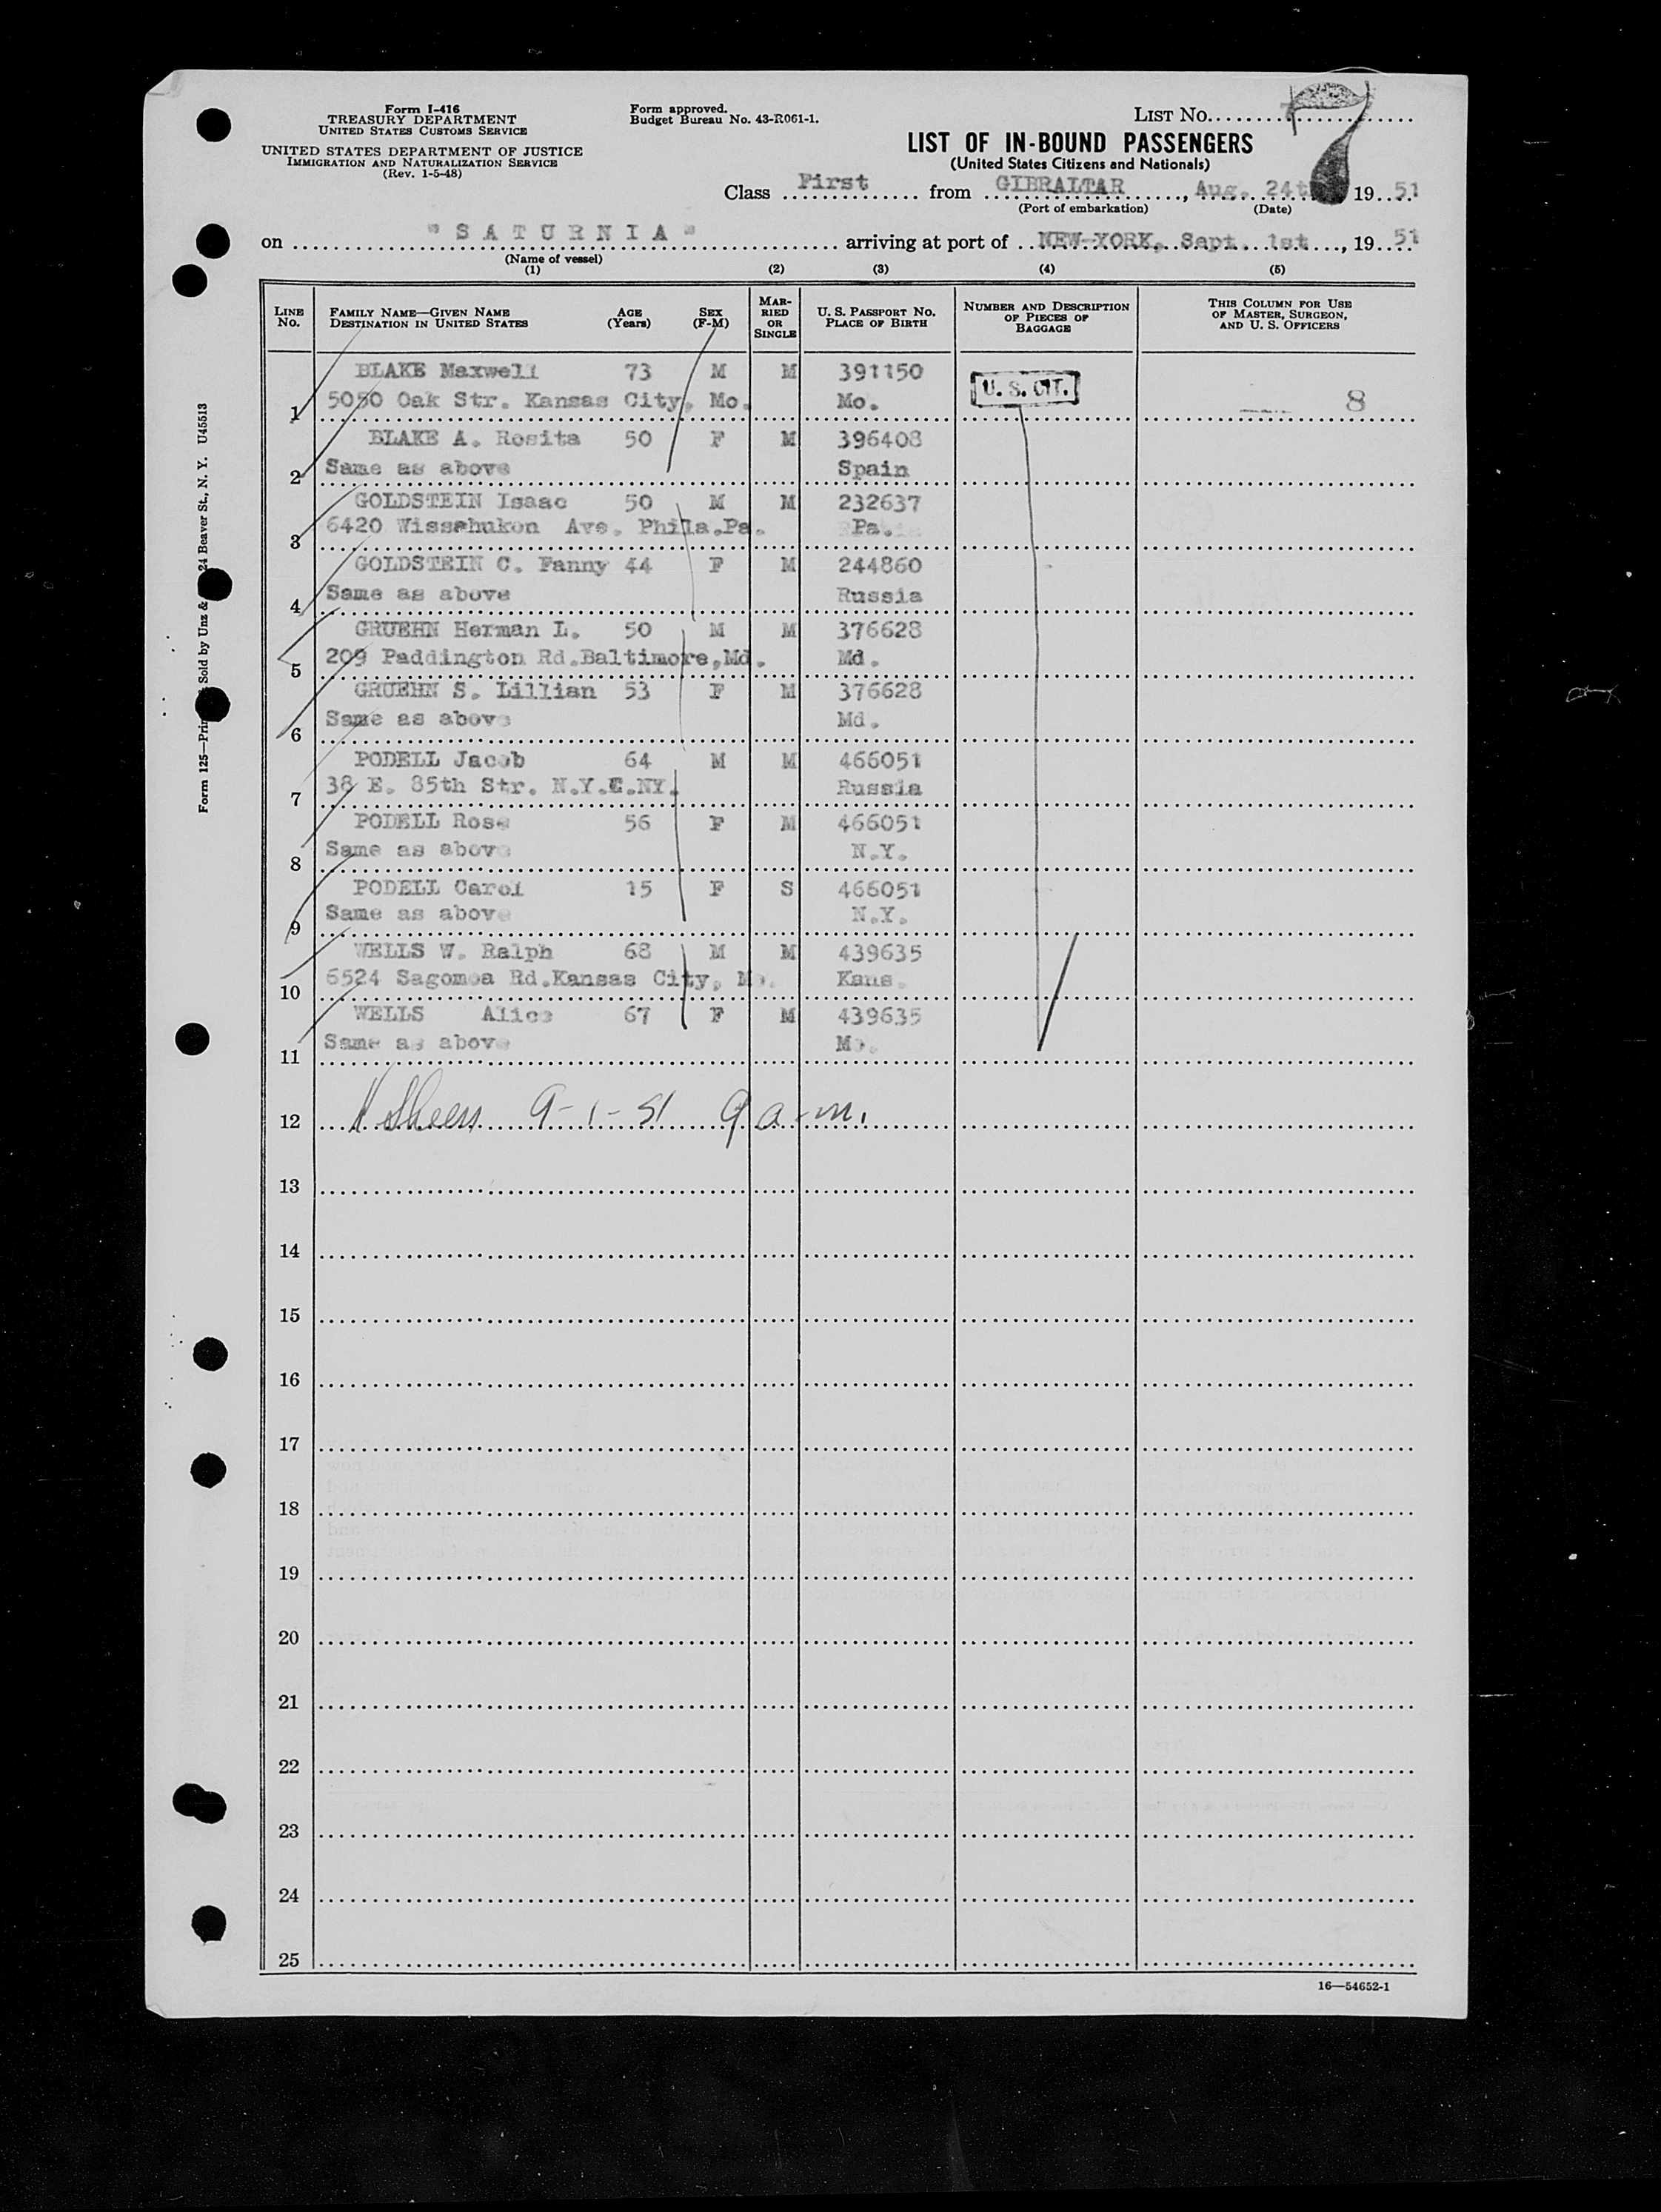 Form I-416
TREASURY DEPARTMENT
UNITED STATES CUSTOMS SERVICE
UNITED STATES DEPARTMENT OF JUSTICE
IMMIGRATION AND NATURALIZATION SERVICE
(Rev. 1-5-48)
Form approved.
Budget Bureau No. 43-R061-1.
LIST NO. 7
LIST OF IN-BOUND PASSENGERS
(United States Citizens and Nationals)
Class First from GIBRALTAR, Aug. 24t 1951
(Port of embarkation) (Date)
on "SATURNIA" arriving at port of NEW-YORK, Sept. 1st, 1951
(Name of vessel)
(1) (2) (3) (4) (5)
LINE NO. FAMILY NAME—GIVEN NAME DESTINATION IN UNITED STATES AGE (Years) SEX (F-M) MARRIED OR SINGLE U. S. PASSPORT NO. PLACE OF BIRTH NUMBER AND DESCRIPTION OF PIECES OF BAGGAGE THIS COLUMN FOR USE OF MASTER, SURGEON, AND U. S. OFFICERS
BLAKE Maxwell 73 M M 391150 U. S. CIT.
1 5050 Oak Str. Kansas City, Mo. Mo. 8
BLAKE A. Rosita 50 F M 396408
2 Same as above Spain
GOLDSTEIN Isaac 50 M M 232637
3 6420 Wissahukon Ave. Phila.Pa. Pa.
GOLDSTEIN C. Fanny 44 F M 244860
4 Same as above Russia
GRUEHN Herman L. 50 M M 376628
5 209 Paddington Rd.Baltimore,Md. Md.
GRUEHN S. Lillian 53 F M 376628
6 Same as above Md.
PODELL Jacob 64 M M 466051
7 38 E. 85th Str. N.Y.C.NY. Russia
PODELL Rose 56 F M 466051
8 Same as above N.Y.
PODELL Carol 15 F S 466051
9 Same as above N.Y.
WELLS W. Ralph 68 M M 439635
10 6524 Sagomoa Rd.Kansas City, Mo. Kans.
WELLS Alice 67 F M 439635
11 Same as above Mo.
12 9-1-51 9 a.m.
13
14
15
16
17
18
19
20
21
22
23
24
25
16—54652-1
Form 125—Prin Sold by Unz & 24 Beaver St., N. Y. U45513